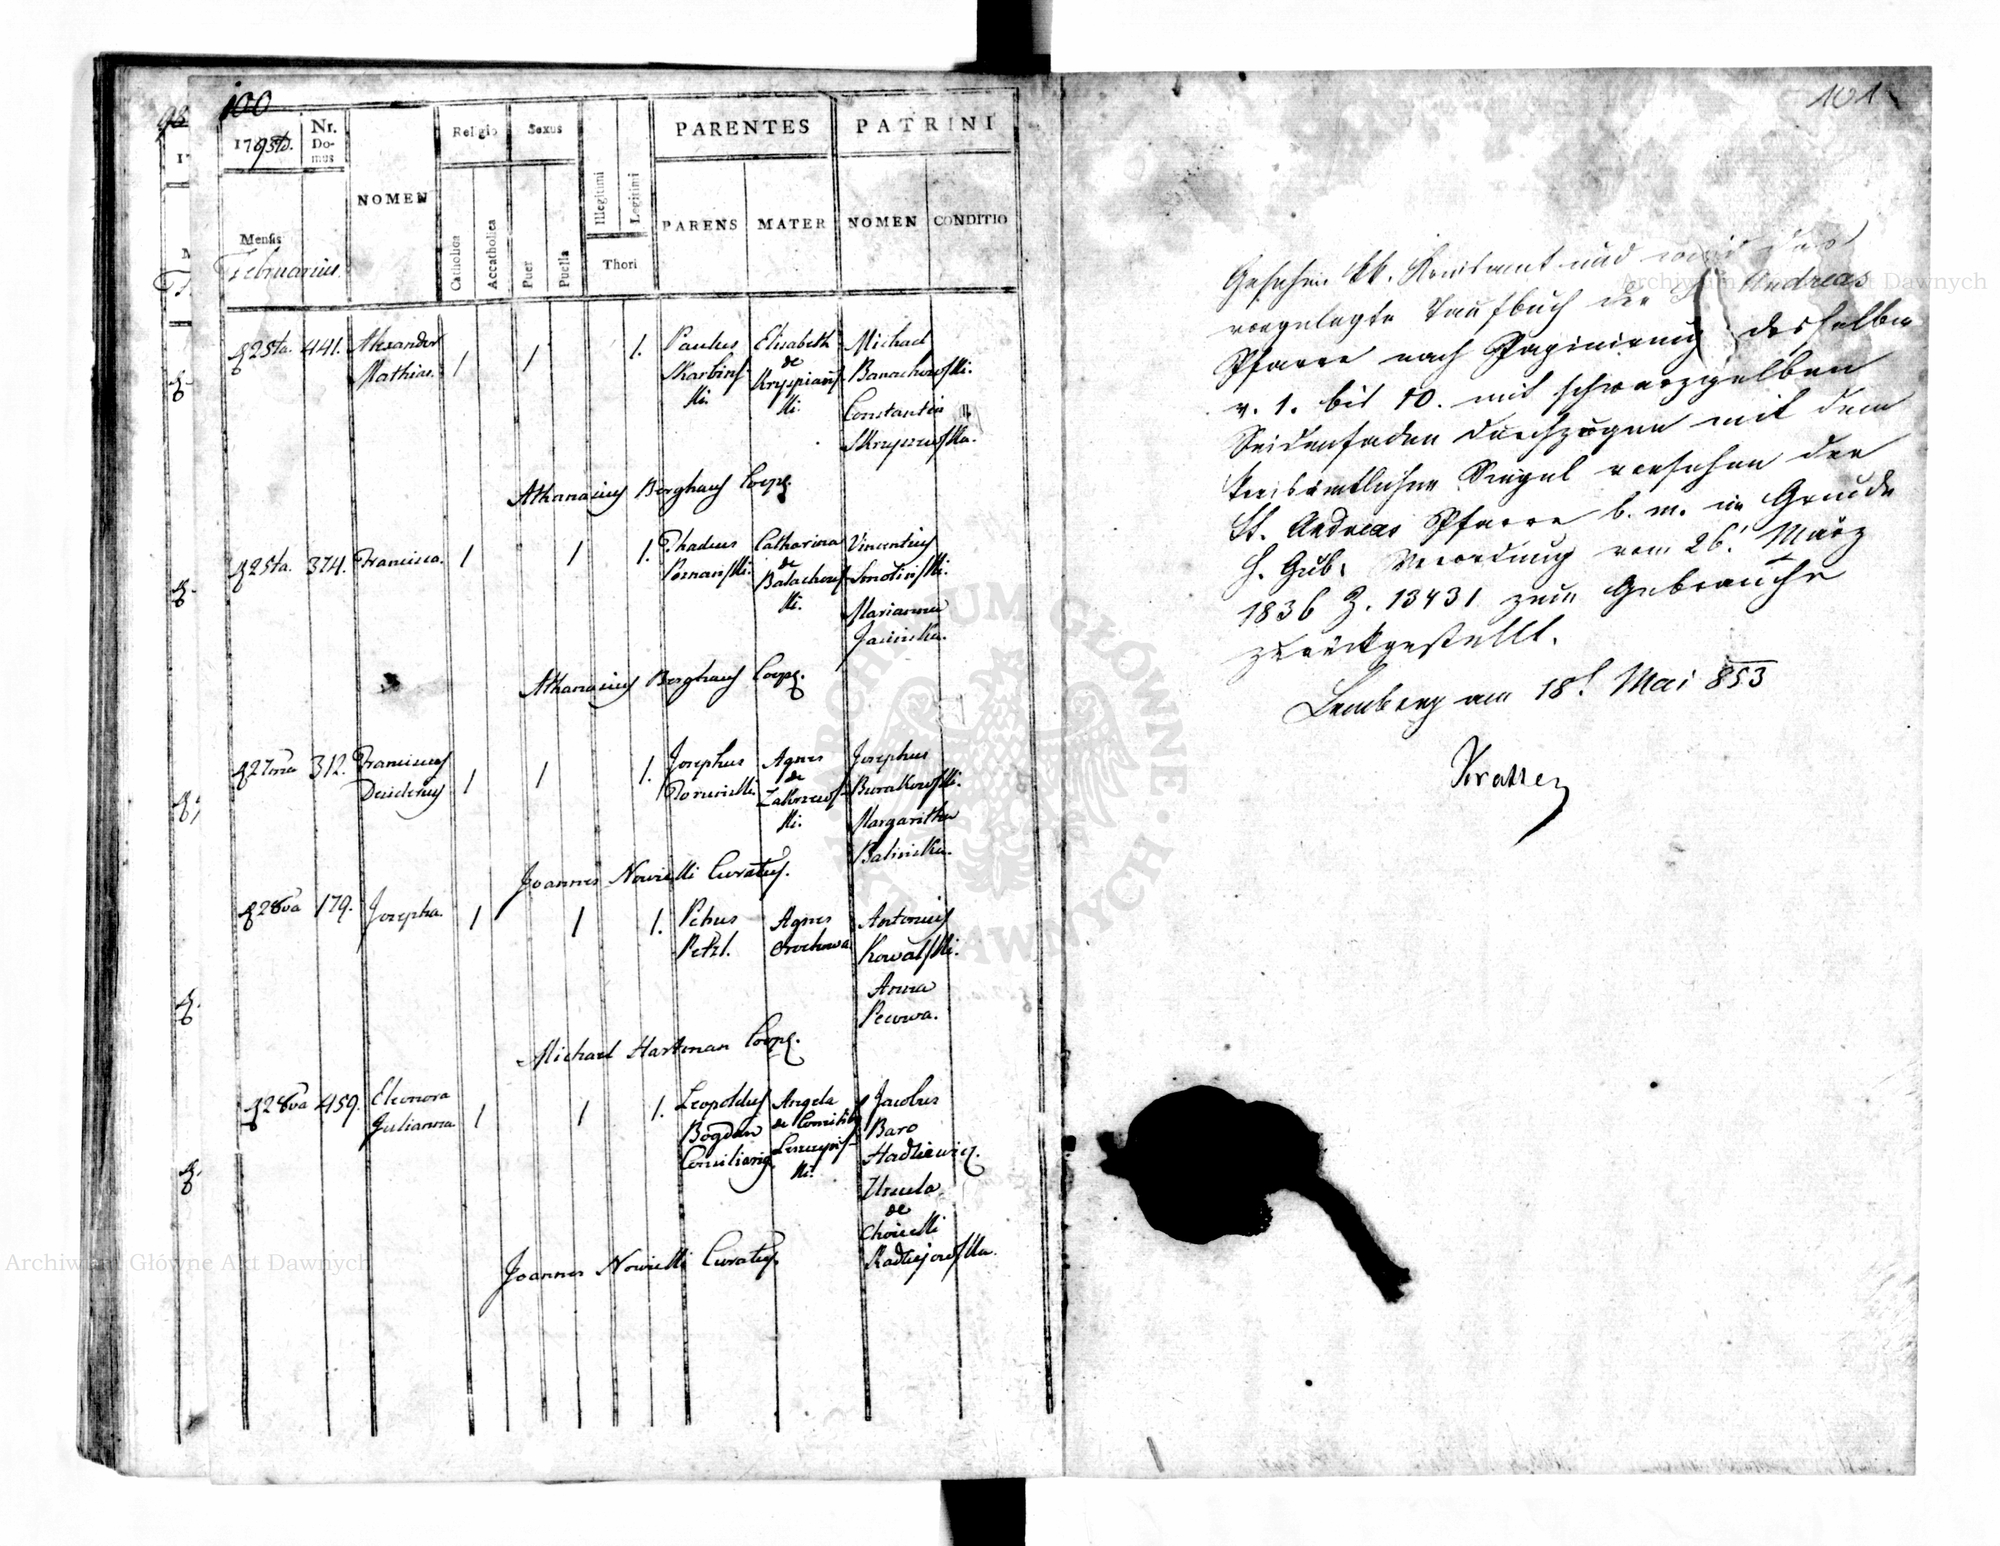 98
100
1795to.
Nr. Domus
NOMEN
Religio
Sexus
PARENTES
PATRINI
Catholica
Accatholica
Puer
Puella
Illegitimi
Legitimi
Thori
PARENS
MATER
NOMEN
CONDITIO
Mensis
Februarius.
25ta. 441. Alexander 1 1 1. Paulus Elisabeth Michael
Mathias. Skarbinski. de Banachowski.
Constantia
Athanasius Berghaus Coop.
25ta. 374. Francisca. 1 1 1. Thadeus Catharina Vincentius
Poznanski. de Smolinski.
Marianna
Athanasius Berghaus Coop.
27ma 312. Franciscus 1 1 1. Josephus Agnes Josephus
Desiderius de Burakowski.
Margaritha
Balinska.
Joannes Nowicki Curatus.
28va 179. Josepha. 1 1 1. Petrus Agnes Antonius
Petzl. Kowalski.
Anna
Michael Hartman Coop.
28va 459. Eleonora 1 1 1. Leopoldus Angela Jacobus
Julianna Bogdan de Baro
Consiliarius Hadziewicz.
Ursula
de
Radziejowska.
Joannes Nowicki Curatus.
101
Gesehen kk. Kreisamt und wird das
vorgelegte Taufbuch der St Andreas
Pfarre nach Paginirung desselben
v. 1. bis 10. mit schwarzgelben
Seidenfaden durchzogen mit dem
kreisämtlichen Siegel versehen der
St. Andreas Pfarre b. m. im Grunde
h. Gub. Verordnung vom 26. März
1836 Z. 13431 zum Gebrauche
zurückgestellt.
Lemberg am 18t Mai 853
Archiwum Główne Akt Dawnych
ARCHIWUM GŁÓWNE AKT DAWNYCH
Archiwum Główne Akt Dawnych